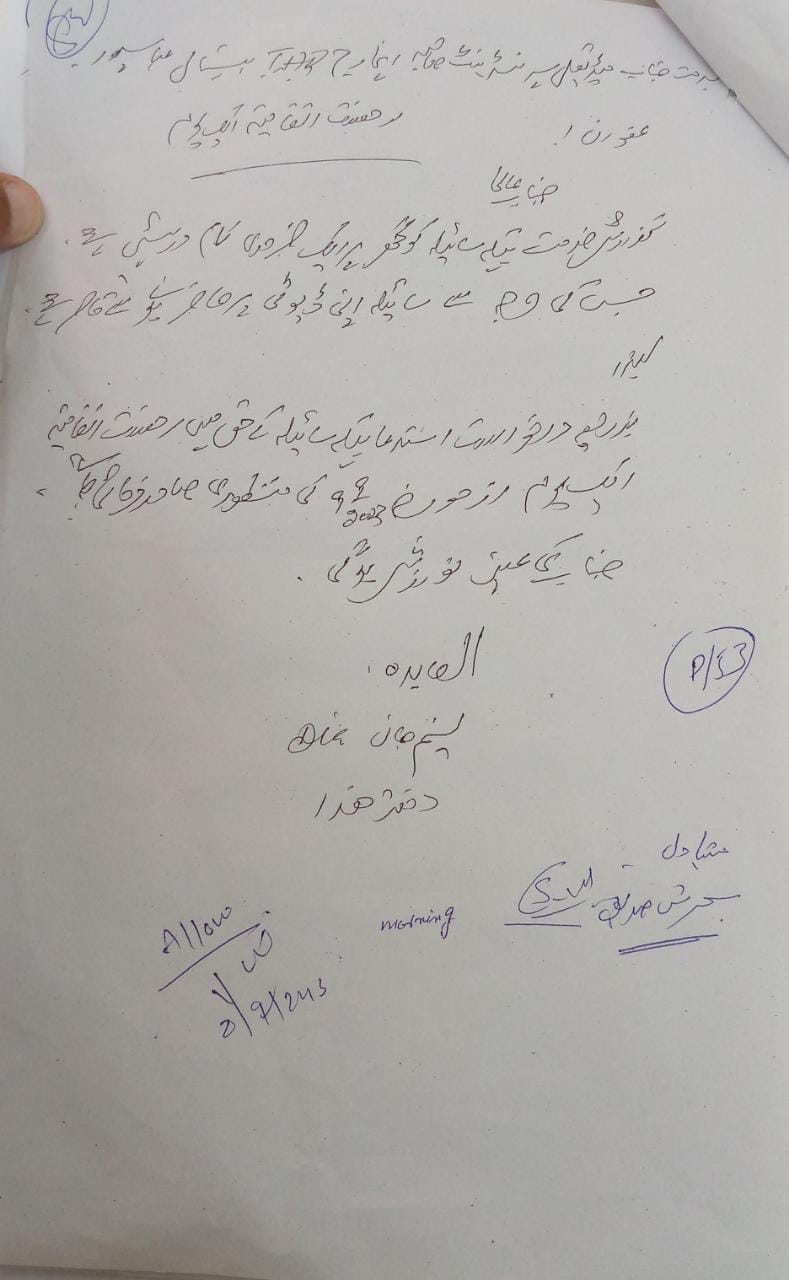 بخدمت جناب میڈیکل سپرنٹنڈنٹ صاحبہ انچارج ہسپتال
عنوان: رخصت اتفاقیہ ایک یوم
جناب عالی
گزارش خدمت ہیکہ سائیلہ کو گھر پر ایک ضروری کام درپیش ہے۔
جس کی وجہ سے سائیلہ اپنی ڈیوٹی پر حاضر ہونے سے قاصر ہے۔
لہذا
بذریعہ درخواست استدعا ہیکہ سائیلہ کے حق میں رخصت اتفاقیہ
ایک یوم از مورخہ 9/2023 کی منظوری صادر فرمائی جائے۔
جناب کی عین نوازش ہوگی۔
العارضہ
P/53
جان
دفتر ھذا
متبادل
سحرش صدیق
morning
Allow
/9/2023